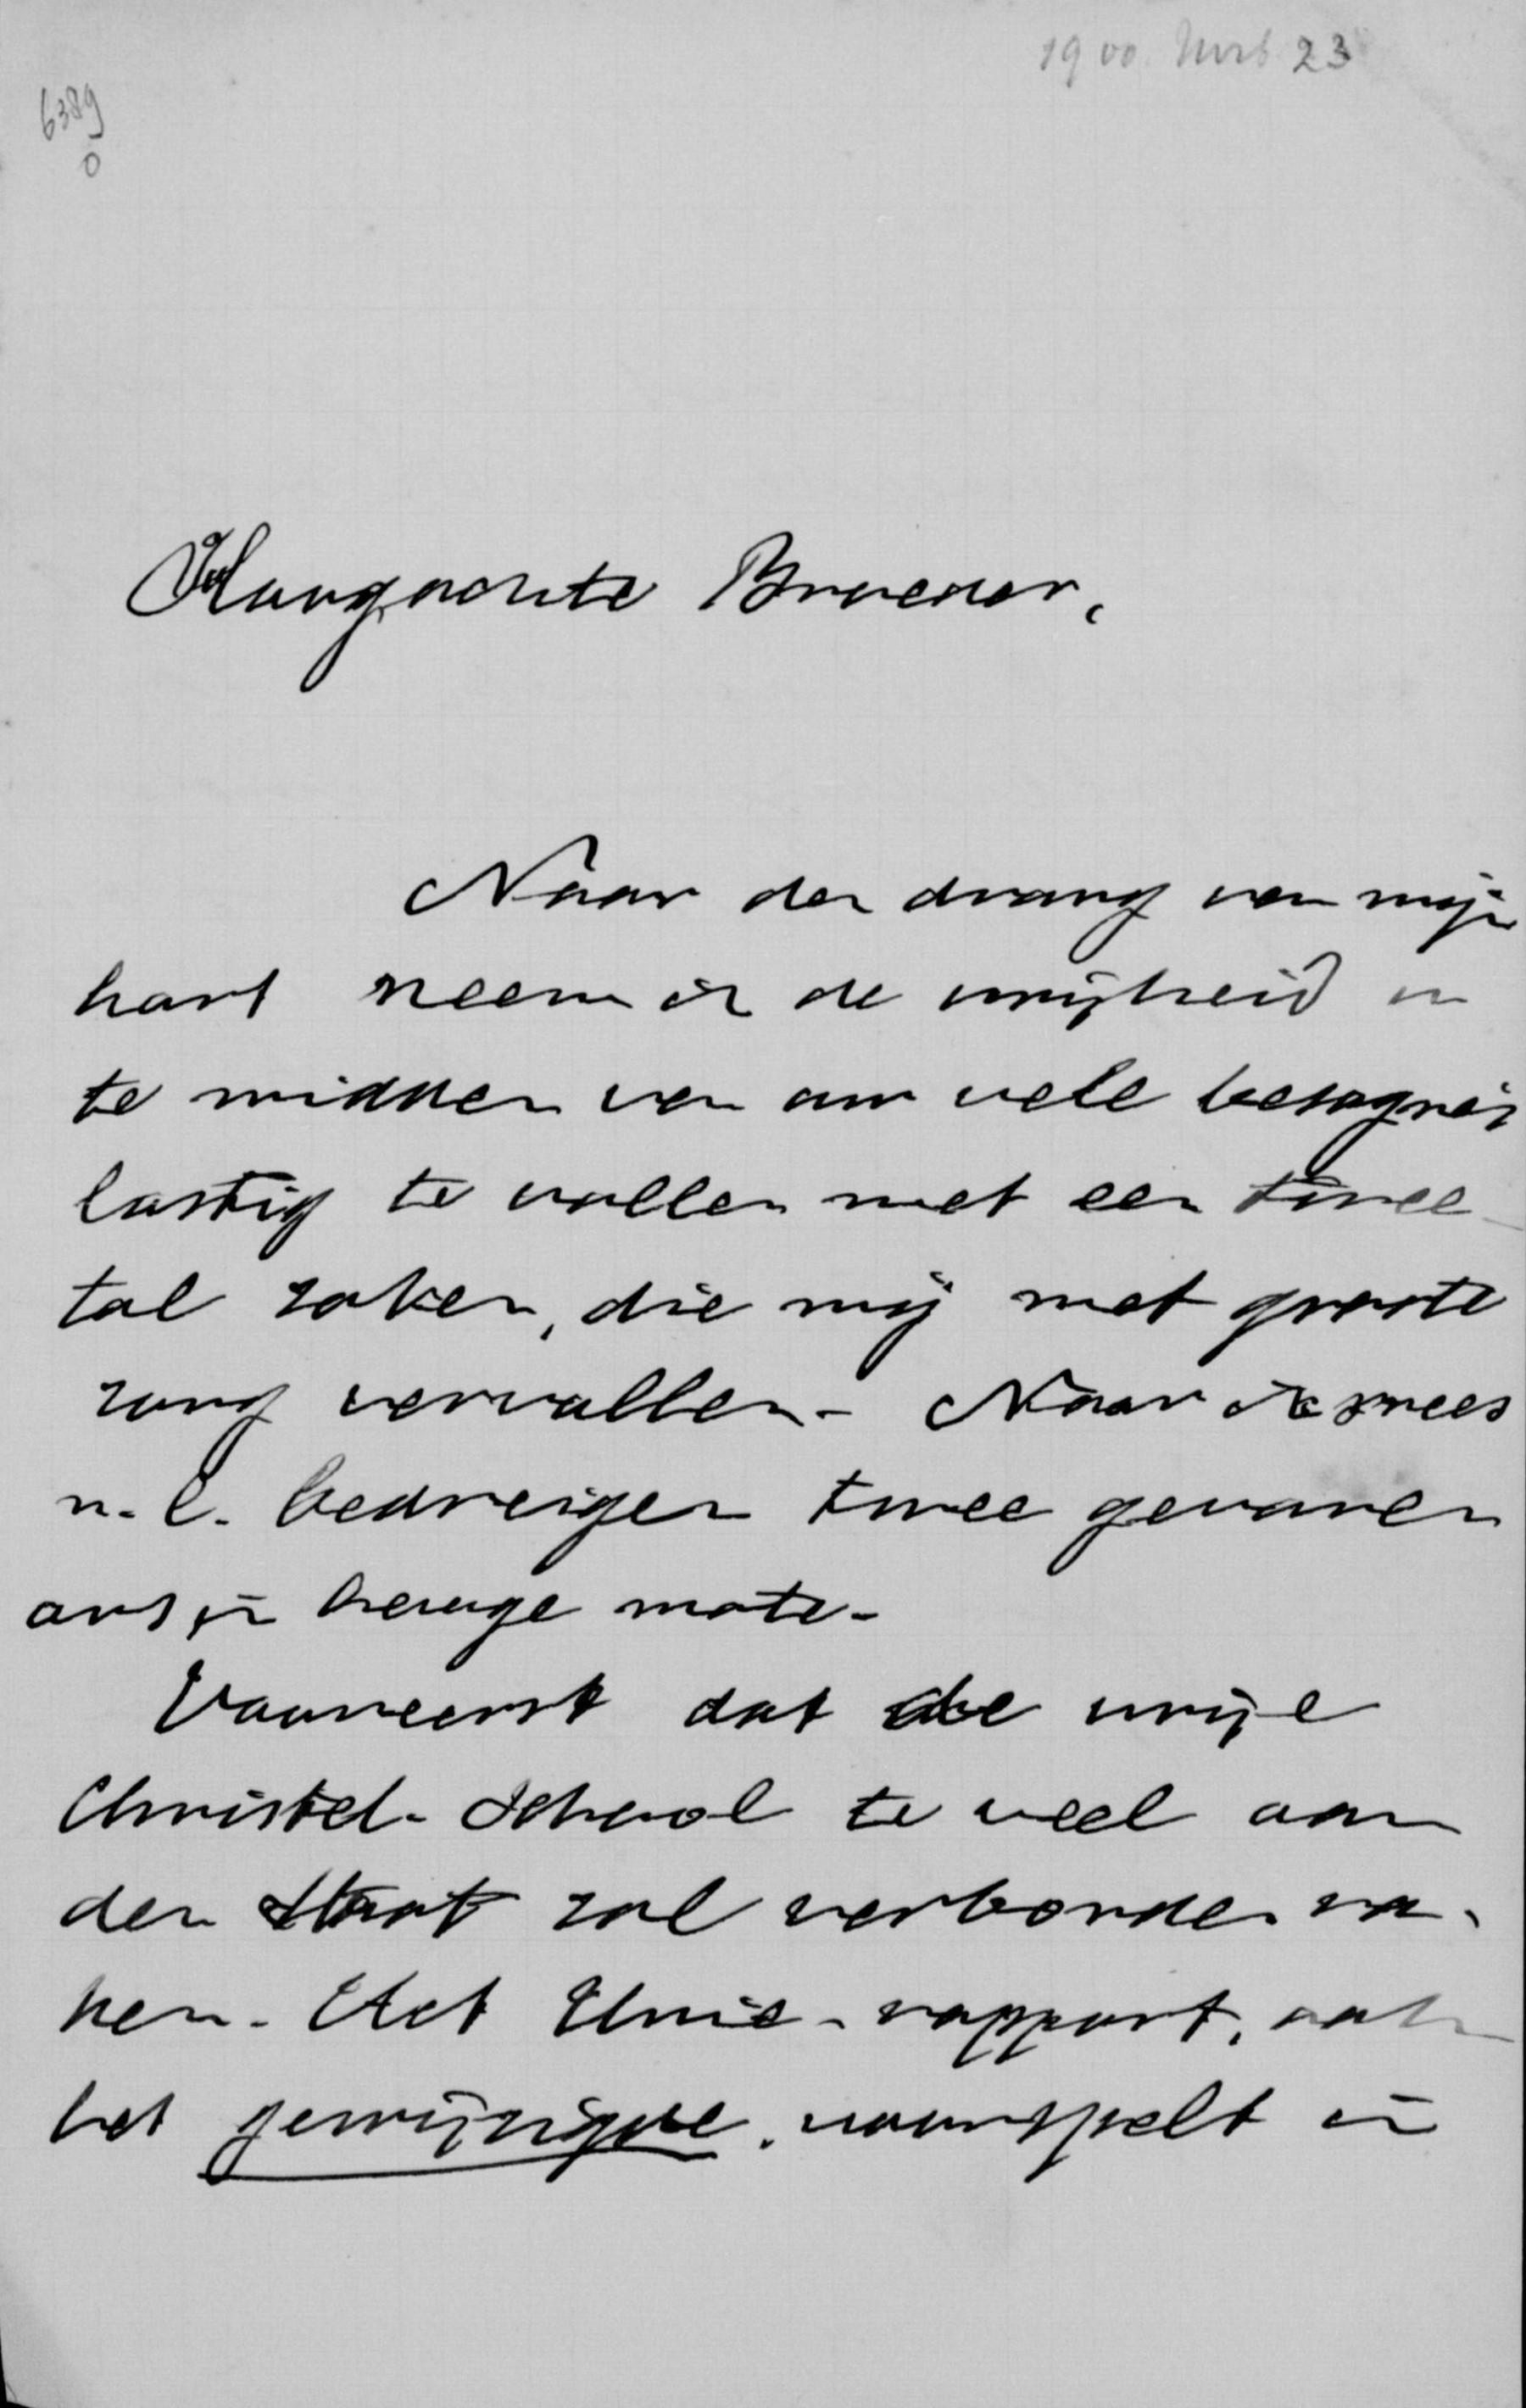 1900. Nov. 23
6389
0
Hoogachte Broeder,
Naar den drang van mijn
hart neem ik de vrijheid u
te midden van uw vele besognes
lastig te vallen met een twee
tal zaken, die mij met groote
zorg vervullen. Naar ik vrees
n.l. bedreigen twee gevaren
ons in hevige mate.
Vooreerst dat de vrije
Christel. School te veel aan
den Staat zal verbonden ra-
ken. Het Unie-rapport, ook
het gewijzigde, voorspelt in